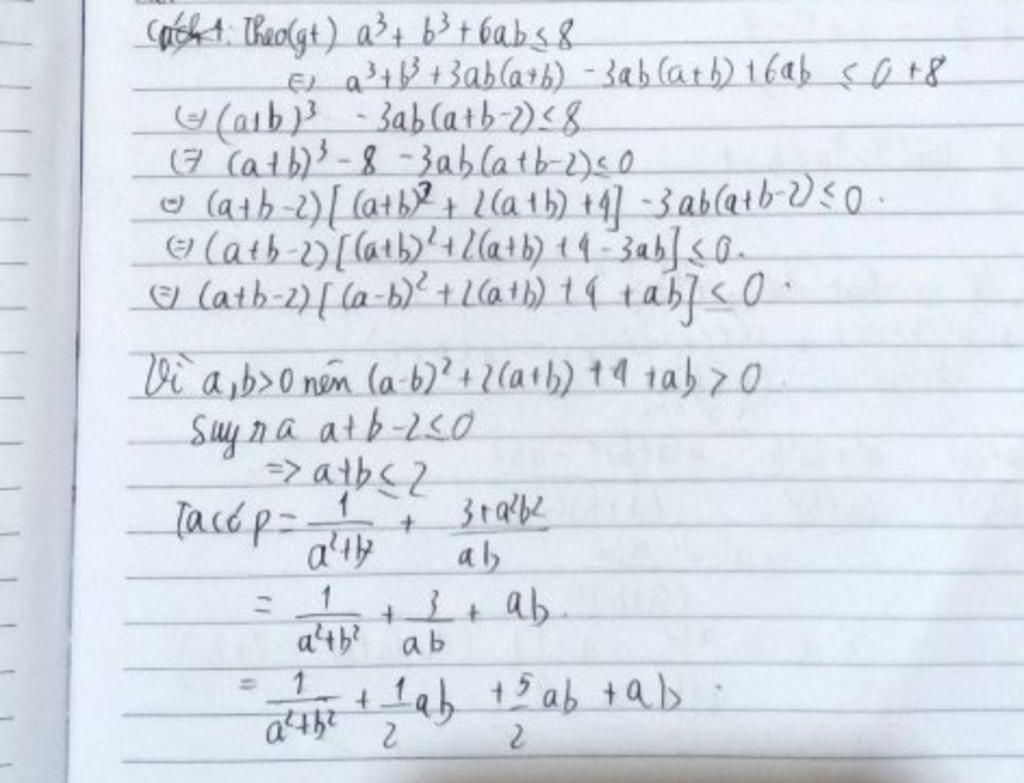 Cách 1: Theo(gt) a³ + b³ + 6ab ≤ 8
⇔ a³ + b³ + 3ab(a+b) - 3ab(a+b) + 6ab ≤ 0 + 8
⇔ (a+b)³ - 3ab(a+b-2) ≤ 8
⇔ (a+b)³ - 8 - 3ab(a+b-2) ≤ 0
⇔ (a+b-2)[(a+b)² + 2(a+b) + 4] - 3ab(a+b-2) ≤ 0.
⇔ (a+b-2)[(a+b)² + 2(a+b) + 4 - 3ab] ≤ 0.
⇔ (a+b-2)[(a-b)² + 2(a+b) + 4 + ab] ≤ 0.
Vì a,b>0 nên (a-b)² + 2(a+b) + 4 + ab > 0.
Suy ra a+b-2 ≤ 0
=> a+b ≤ 2
Ta có P = 1/(a²+b²) + (3+a²b²)/(ab)
= 1/(a²+b²) + 3/(ab) + ab.
= 1/(a²+b²) + 1/2 ab + 5/2 ab + ab.